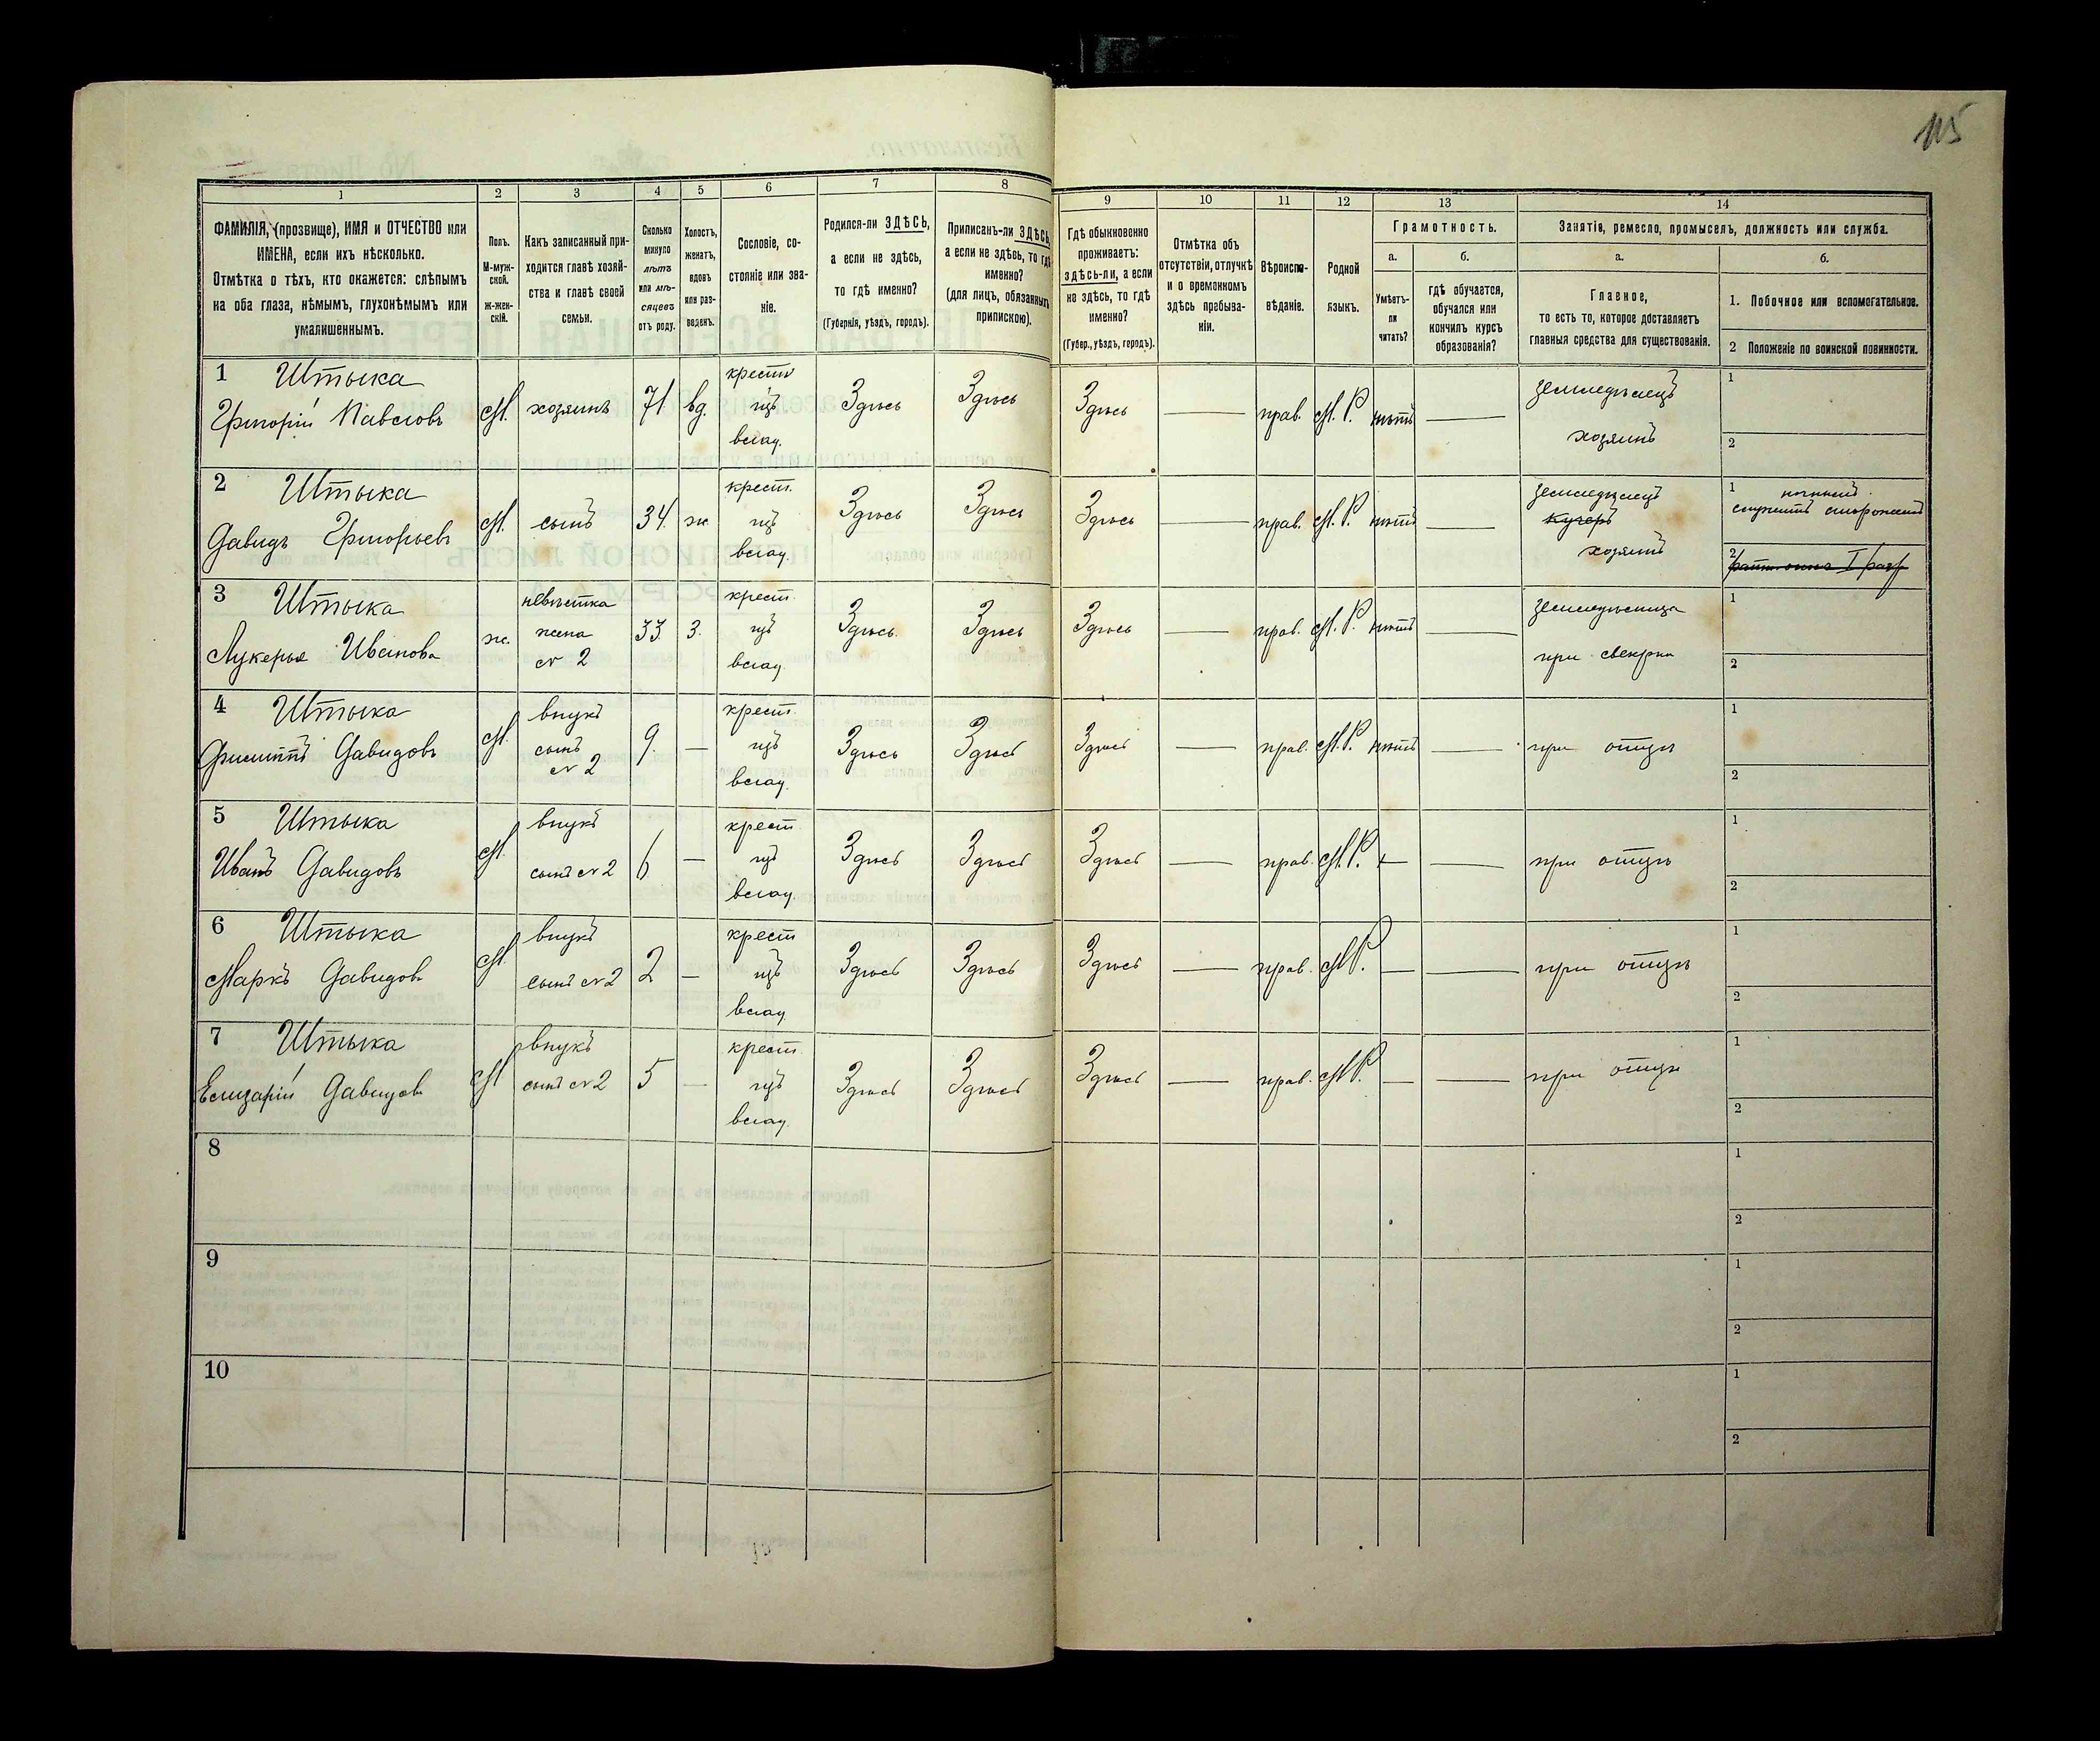 115
1
2
3
4
5
6
7
8
9
10
11
12
13
14
ФАМИЛІЯ, (прозвище), ИМЯ и ОТЧЕСТВО или
ИМЕНА, если ихъ нѣсколько.
Отмѣтка о тѣхъ, кто окажется: слѣпымъ
на оба глаза, нѣмымъ, глухонѣмымъ или
умалишеннымъ.
Полъ.
М-муж-
ской.
ж-жен-
скій.
Какъ записанный при-
ходится главѣ хозяй-
ства и главѣ своей
семьи.
Сколько
минуло
лѣтъ
или мѣ-
сяцевъ
отъ роду.
Холостъ,
женатъ,
вдовъ
или раз-
веденъ.
Сословіе, со-
стояніе или зва-
ніе.
Родился-ли ЗДѢСЬ,
а если не здѣсь,
то гдѣ именно?
(Губернія, уѣздъ, городъ).
Приписанъ-ли ЗДѢСЬ,
а если не здѣсь, то гдѣ
именно?
(для лицъ, обязанныхъ
припискою).
Гдѣ обыкновенно
проживаетъ:
здѣсь-ли, а если
не здѣсь, то гдѣ
именно?
(Губер., уѣздъ, городъ).
Отмѣтка объ
отсутствіи, отлучкѣ
и о временномъ
здѣсь пребыва-
ніи.
Вѣроиспо-
вѣданіе.
Родной
языкъ.
Грамотность.
а.
Умѣетъ-
ли
читать?
б.
гдѣ обучается,
обучался или
кончилъ курсъ
образованія?
Занятія, ремесло, промыселъ, должность или служба.
а.
Главное,
то есть то, которое доставляетъ
главныя средства для существованія.
б.
1. Побочное или вспомогательное.
2 Положеніе по воинской повинности.
1 Штыка
Григорій Павловъ
М.
хозяинъ
71
вд.
крестн
изъ
влад.
Здѣсь
Здѣсь
Здѣсь
—
прав.
М. Р.
нѣтъ
—
земледѣлецъ
хозяинъ
1
2
2 Штыка
Давидъ Григорьевъ
М.
сынъ
34.
ж.
крест.
изъ
влад.
Здѣсь
Здѣсь
Здѣсь
—
прав.
М. Р.
нѣтъ
—
земледѣлецъ
кучеръ
хозяинъ
1 ночный
служитъ сторожемъ
2 I разр
3 Штыка
Лукерья Иванова
ж.
невѣстка
жена
№ 2
33.
З.
крест.
изъ
влад.
Здѣсь.
Здѣсь
Здѣсь
—
прав.
М. Р.
нѣтъ
—
земледѣлица
при свекрѣ
1
2
4 Штыка
Филиппъ Давидовъ
М.
внукъ
сынъ
№ 2
9.
—
крест.
изъ
влад.
Здѣсь
Здѣсь
Здѣсь
—
прав.
М. Р.
нѣтъ
—
при отцѣ
1
2
5 Штыка
Иванъ Давидовъ
М.
внукъ
сынъ № 2
6
—
крест
изъ
влад.
Здѣсь
Здѣсь
Здѣсь
—
прав.
М. Р.
—
—
при отцѣ
1
2
6 Штыка
Маркъ Давидов
М.
внукъ
сынъ № 2
2
—
крест
изъ
влад.
Здѣсь
Здѣсь
Здѣсь
—
прав.
М Р.
—
—
при отцѣ
1
2
7 Штыка
Елизарій Давидов
М
внукъ
сынъ № 2
5
—
крест.
изъ
влад.
Здѣсь
Здѣсь
Здѣсь
—
прав.
М Р.
—
—
при отцѣ
1
2
8
1
2
9
1
2
10
1
2